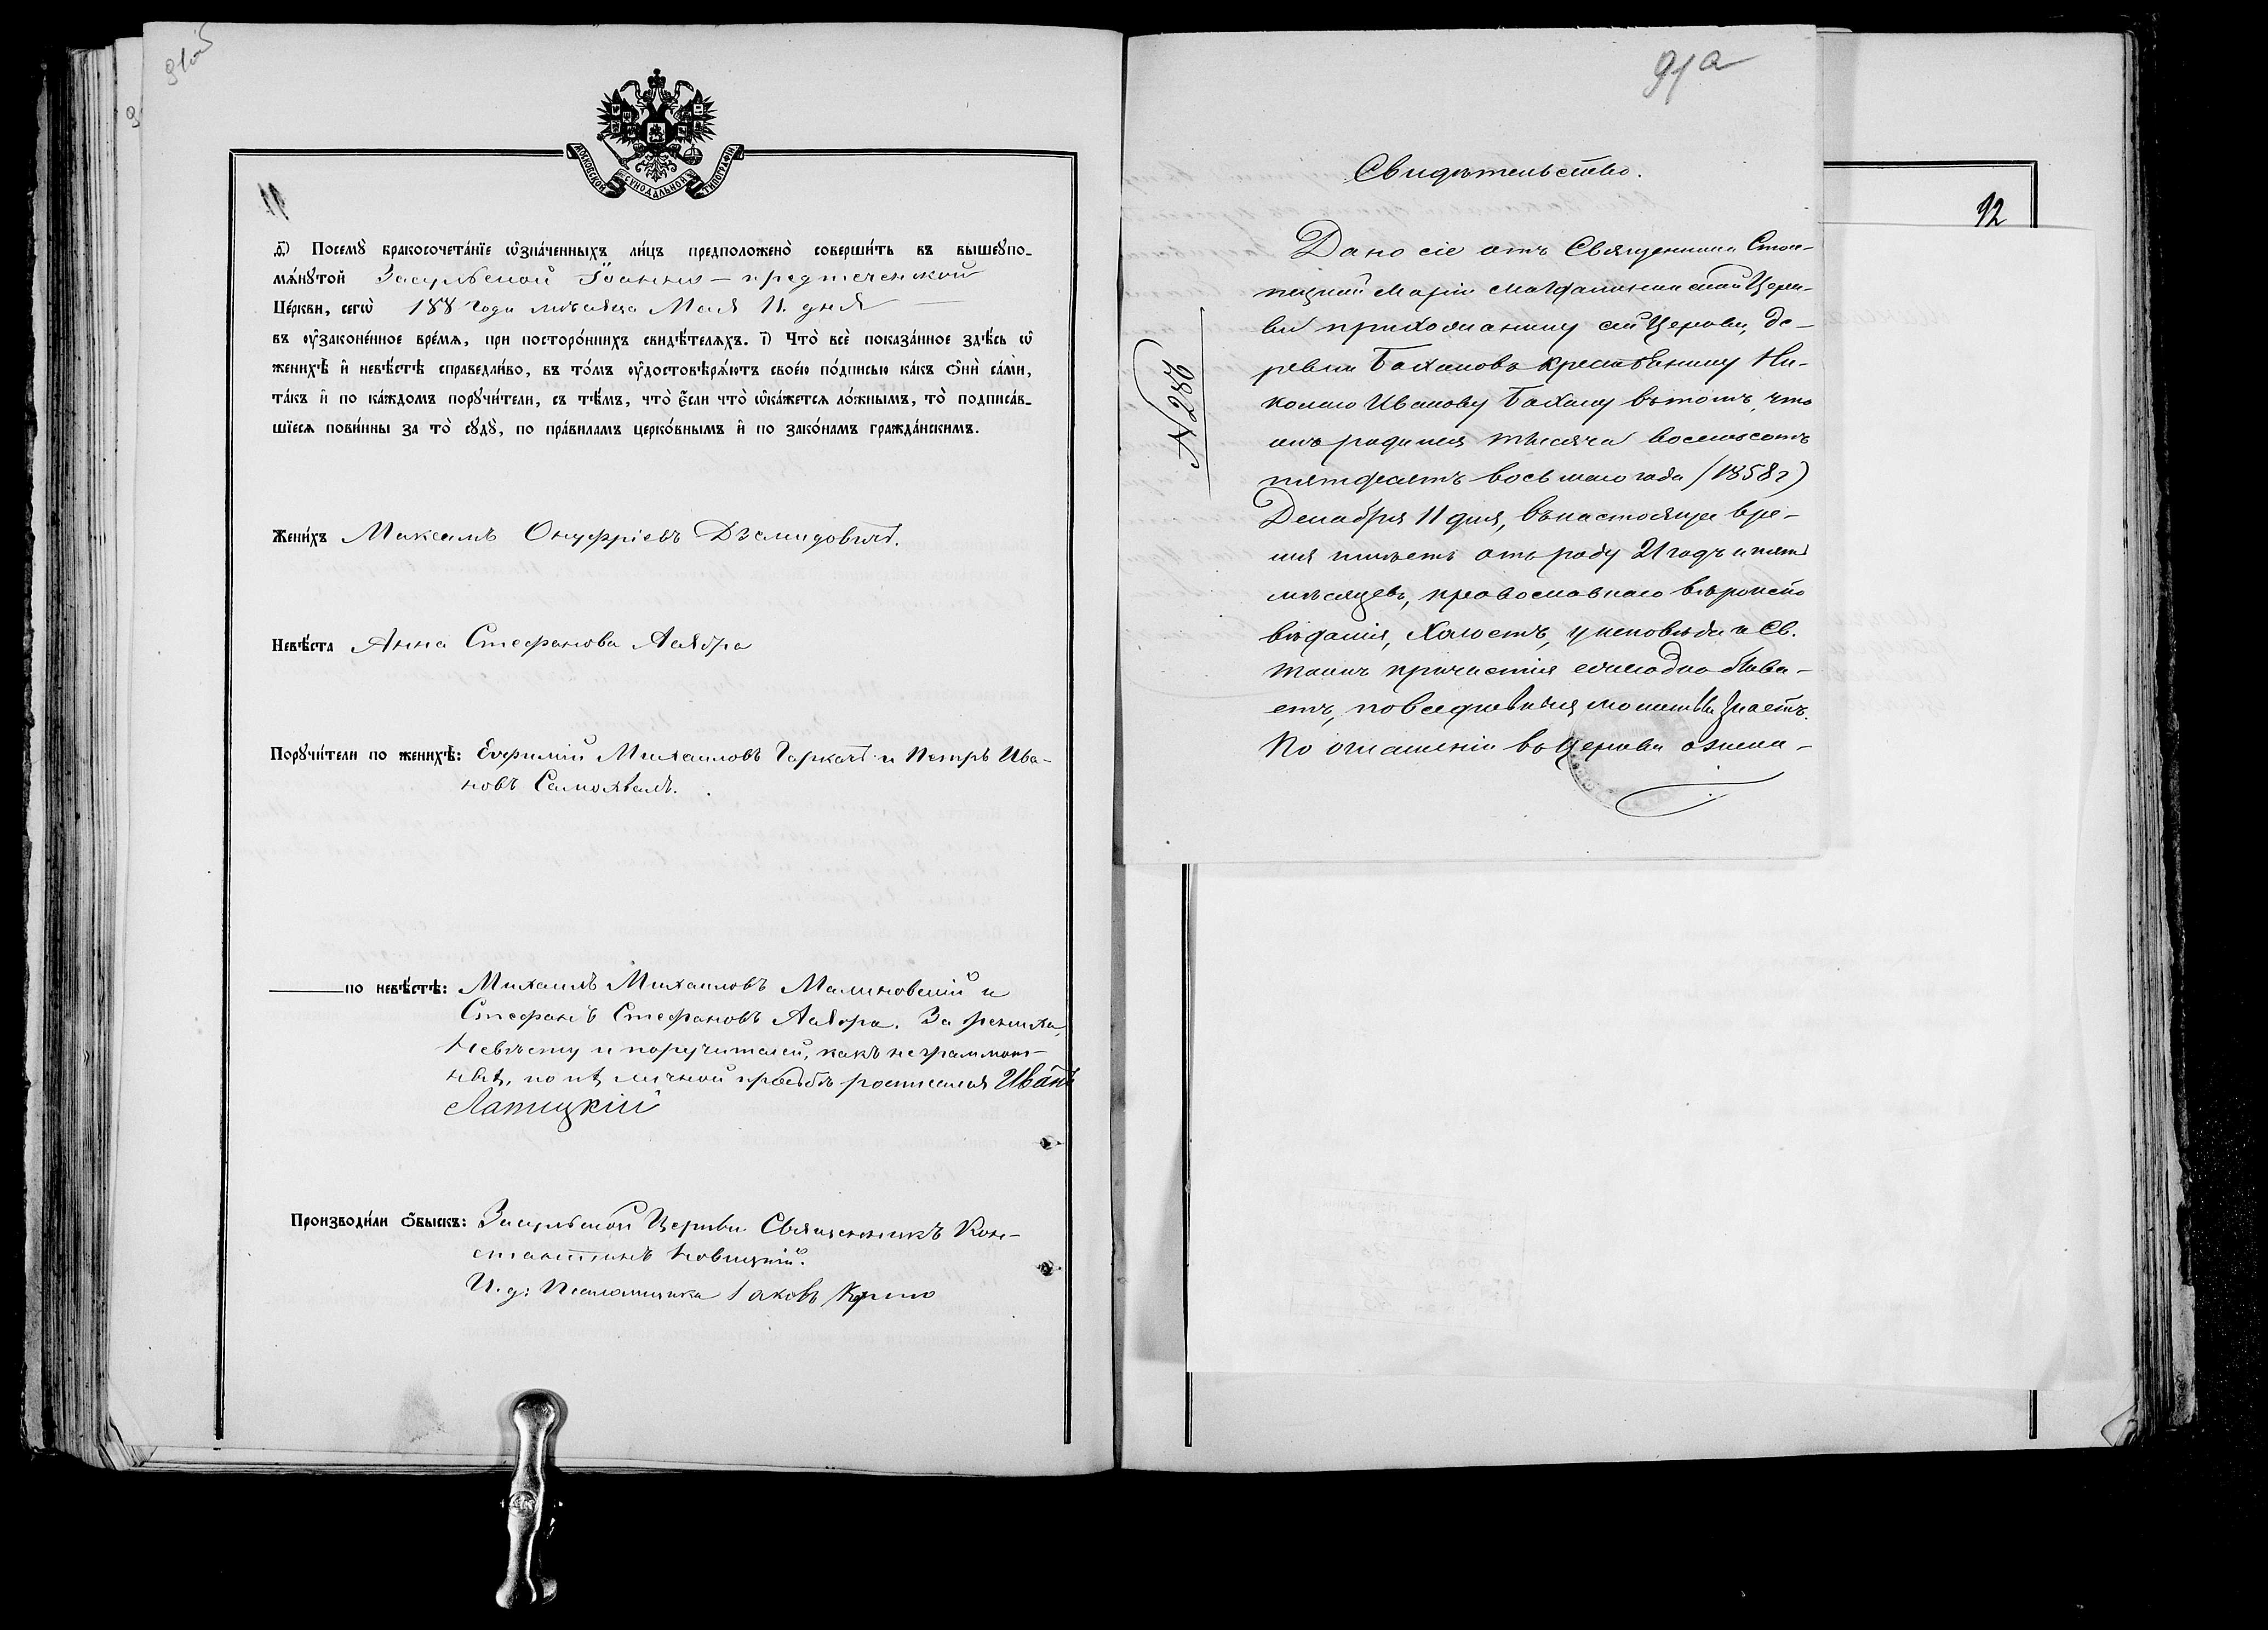 91об
МОСКОВСКОЙ СѴНОДАЛЬНОЙ ТИПОГРАФІИ
11
д҃) Посемꙋ̀ бракосочета́нїе ѡ҆зна́ченныхъ ли́цъ предположено̀ соверши́ть въ вышеꙋпо-
мѧ́нꙋтой Засульской Іоанно-предтеченской
Це́ркви, сегѡ̀ 188 года мѣсяца Мая 11. дня
въ ᲂу҆законе́нное вре́мѧ, при посторо́ннихъ свидѣ́телѧхъ. і҃) Что̀ всѐ пока́занное здѣ́сь ѡ҆
женихѣ̀ и҆ невѣ́стѣ справедли́во, въ то́мъ ᲂу҆достовѣрѧ́ютъ свое́ю по́дписью ка́къ ѻ҆нѝ са́ми,
та́къ и҆ по ка́ждомъ порꙋчи́тели, съ тѣ́мъ, что̀ є҆́сли что̀ ѡ҆ка́жетсѧ ло́жнымъ, то̀ подписа́в-
шїесѧ пови́нны за то̀ сꙋдꙋ̀, по пра́виламъ церко́внымъ и҆ по зако́намъ гражда́нскимъ.
Жени́хъ Максимъ Онуфріевъ Дземидовичъ.
Невѣ́ста Анна Стефанова
Порꙋчи́тели по женихѣ̀: Евфимій Михаиловъ Гаркачъ и Петръ Ива-
новъ Самохвалъ.
по невѣ́стѣ: Михаилъ Михаиловъ Малиновскій и
Стефанъ Стефановъ За жениха,
невѣсту и поручителей, какъ неграммот-
ныхъ, по ихъ личной прозьбѣ росписался Иванъ
Латицкій
Производи́ли ѻ҆́быскъ: Засульской Церкви Священникъ Кон-
стантинъ Новицкій.
И. д: Псаломщика Іаковъ
91а
Свидѣтельство.
№ 286
Дано сіе отъ Священника Стол-
пецкой Маріи Магдалининской Церк-
ви прихожанину сей Церкви, де-
ревни Бахановъ крестьянину Ни-
колаю Иванову Бахану въ томъ, что
онъ родился тысяча восемьсотъ
пятдесятъ восьмаго года (1858 г)
Декабря 11 дня, въ настоящее вре-
мя имѣетъ отъ роду 21 годъ и пять
мѣсяцевъ, православнаго вѣроиспо
вѣданія, холостъ, у исповѣди и Св.
таинъ причастія ежегодно быва-
етъ, повседневныя молитвы знаетъ.
По оглашеніи въ Церкви означа-
12